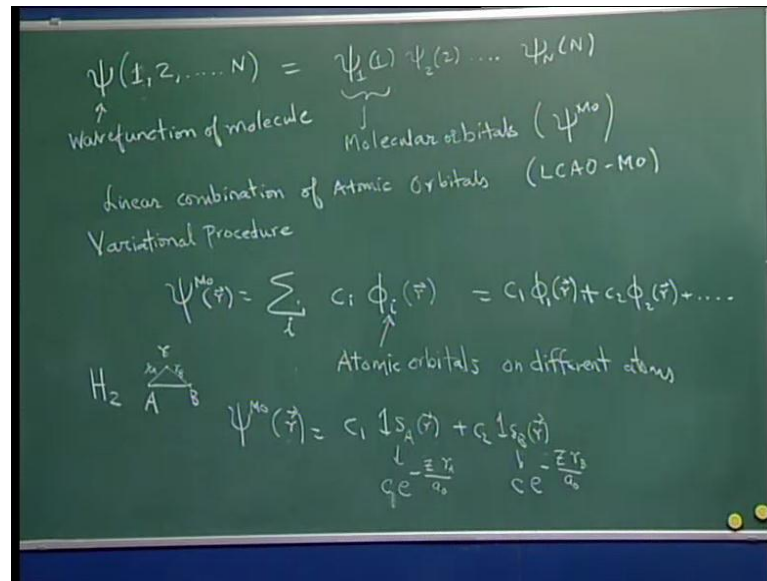 ψ(1,2,..... N) = ψ₁(1) ψ₂(2) .... ψ_N(N)
Wavefunction of molecule
Molecular orbitals (ψ^MO)
Linear combination of Atomic Orbitals (LCAO-MO)
Variational Procedure
ψ^MO(r⃗) = Σ_i c_i ϕ_i(r⃗) = c₁ϕ₁(r⃗) + c₂ϕ₂(r⃗) + ....
Atomic orbitals on different atoms
r
r_A r_B
H₂ A B
ψ^MO(r⃗) = c₁ 1s_A(r⃗) + c₂ 1s_B(r⃗)
ce^{-Zr_A/a₀} ce^{-Zr_B/a₀}